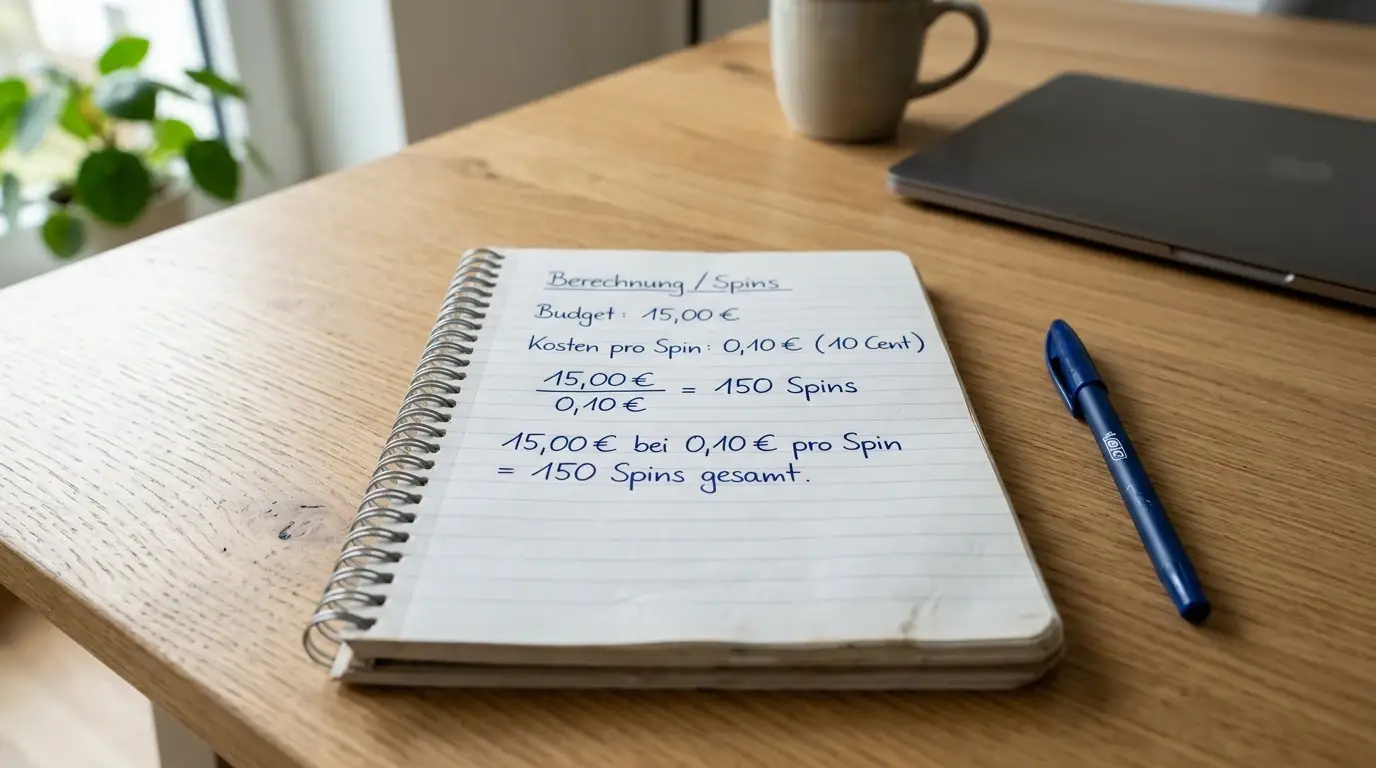 Berechnung / Spins
Budget: 15,00 €
Kosten pro Spin: 0,10 € (10 Cent)
15,00 €
0,10 €
= 150 Spins
15,00 € bei 0,10 € pro Spin
= 150 Spins gesamt.